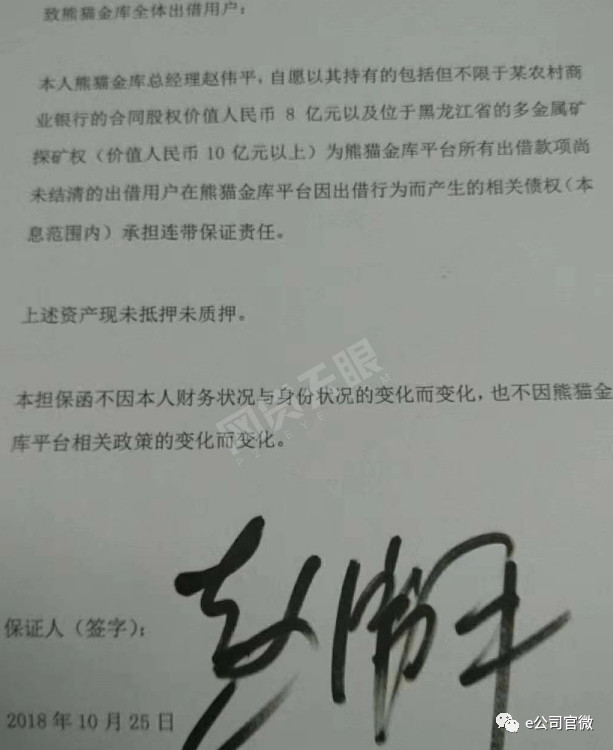 致熊猫金库全体出借用户：
本人熊猫金库总经理赵伟平，自愿以其持有的包括但不限于某农村商
业银行的合同股权价值人民币 8 亿元以及位于黑龙江省的多金属矿
探矿权（价值人民币 10 亿元以上）为熊猫金库平台所有出借款项尚
未结清的出借用户在熊猫金库平台因出借行为而产生的相关债权（本
息范围内）承担连带保证责任。
上述资产现未抵押未质押。
网贷天眼
本担保函不因本人财务状况与身份状况的变化而变化，也不因熊猫金
库平台相关政策的变化而变化。
保证人（签字）：
赵伟平
2018 年 10 月 25 日
e公司官微